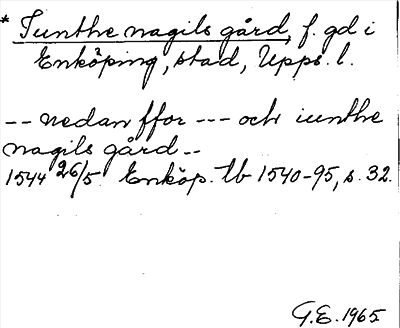 * Iunthe nagils gård, f. gd i
Enköping, stad, Upps. l.
-- nedan ffor --- och iunthe
nagils gård --
1544 26/5. Enköp. tb 1540-95, s. 32.
G.E. 1965